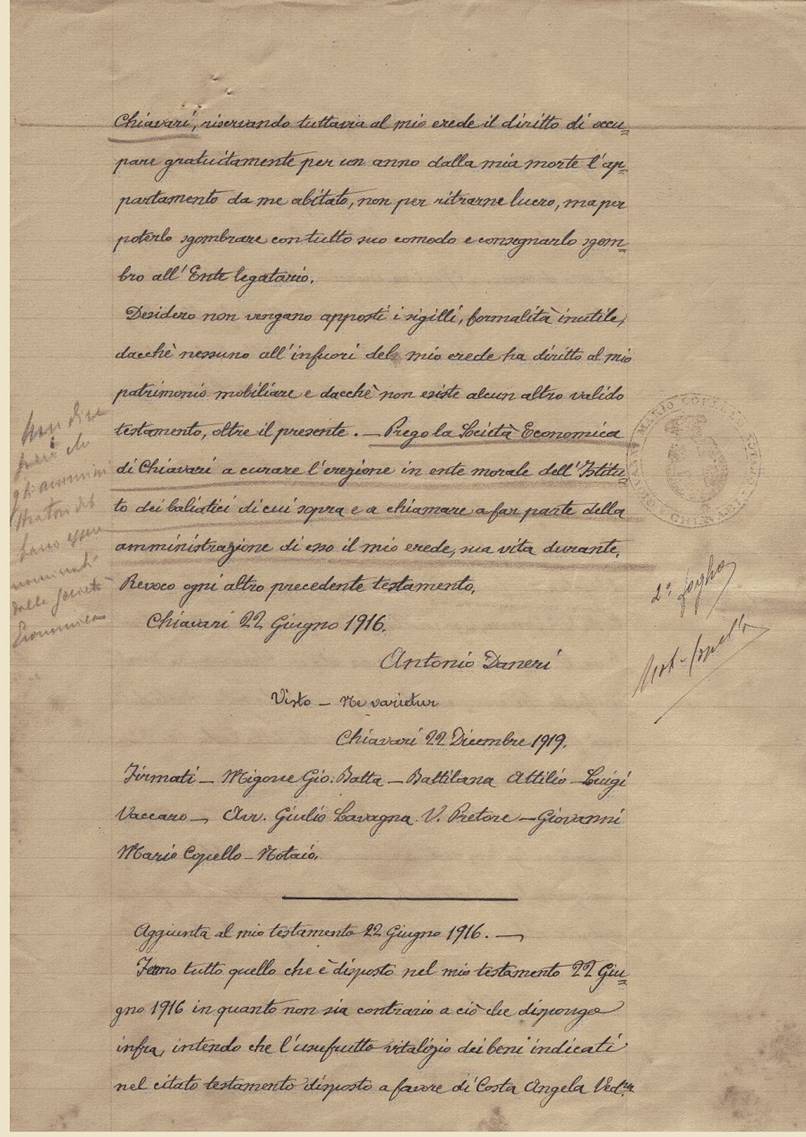 Chiavari, riservando tuttavia al mio erede il diritto di occu=
pare gratuitamente per un anno dalla mia morte l'ap=
partamento da me abitato, non per ritrarne lucro, ma per
poterlo sgombrare con tutto suo comodo e consegnarlo sgom=
bro all'Ente legatario.
Desidero non vengano apposti i sigilli, formalità inutile,
dacchè nessuno all'infuori del mio erede ha diritto al mio
patrimonio mobiliare e dacchè non esiste alcun altro valido
testamento, oltre il presente. — Prego la Società Economica
di Chiavari a curare l'erezione in ente morale dell'Istitu=
to dei baliatici di cui sopra e a chiamare a far parte della
amministrazione di esso il mio erede, sua vita durante.
Revoco ogni altro precedente testamento.
Chiavari 22 Giugno 1916.
Antonio Daneri
Visto — Ne varietur
Chiavari 22 Dicembre 1919.
Firmati — Migone Gio. Batta — Battilana Attilio — Luigi
Vaccaro — Avv. Giulio Lavagna V. Pretore — Giovanni
Mario Copello — Notaio.
Aggiunta al mio testamento 22 Giugno 1916. —
Fermo tutto quello che è disposto nel mio testamento 22 Giu=
gno 1916 in quanto non sia contrario a ciò che dispongo
infra, intendo che l'usufrutto vitalizio dei beni indicati
nel citato testamento disposto a favore di Costa Angela Ved.va
però che
gli ammini
stratori deb
bano essere
nominati
dalla Società
Economica
2° foglio
Not. Copello